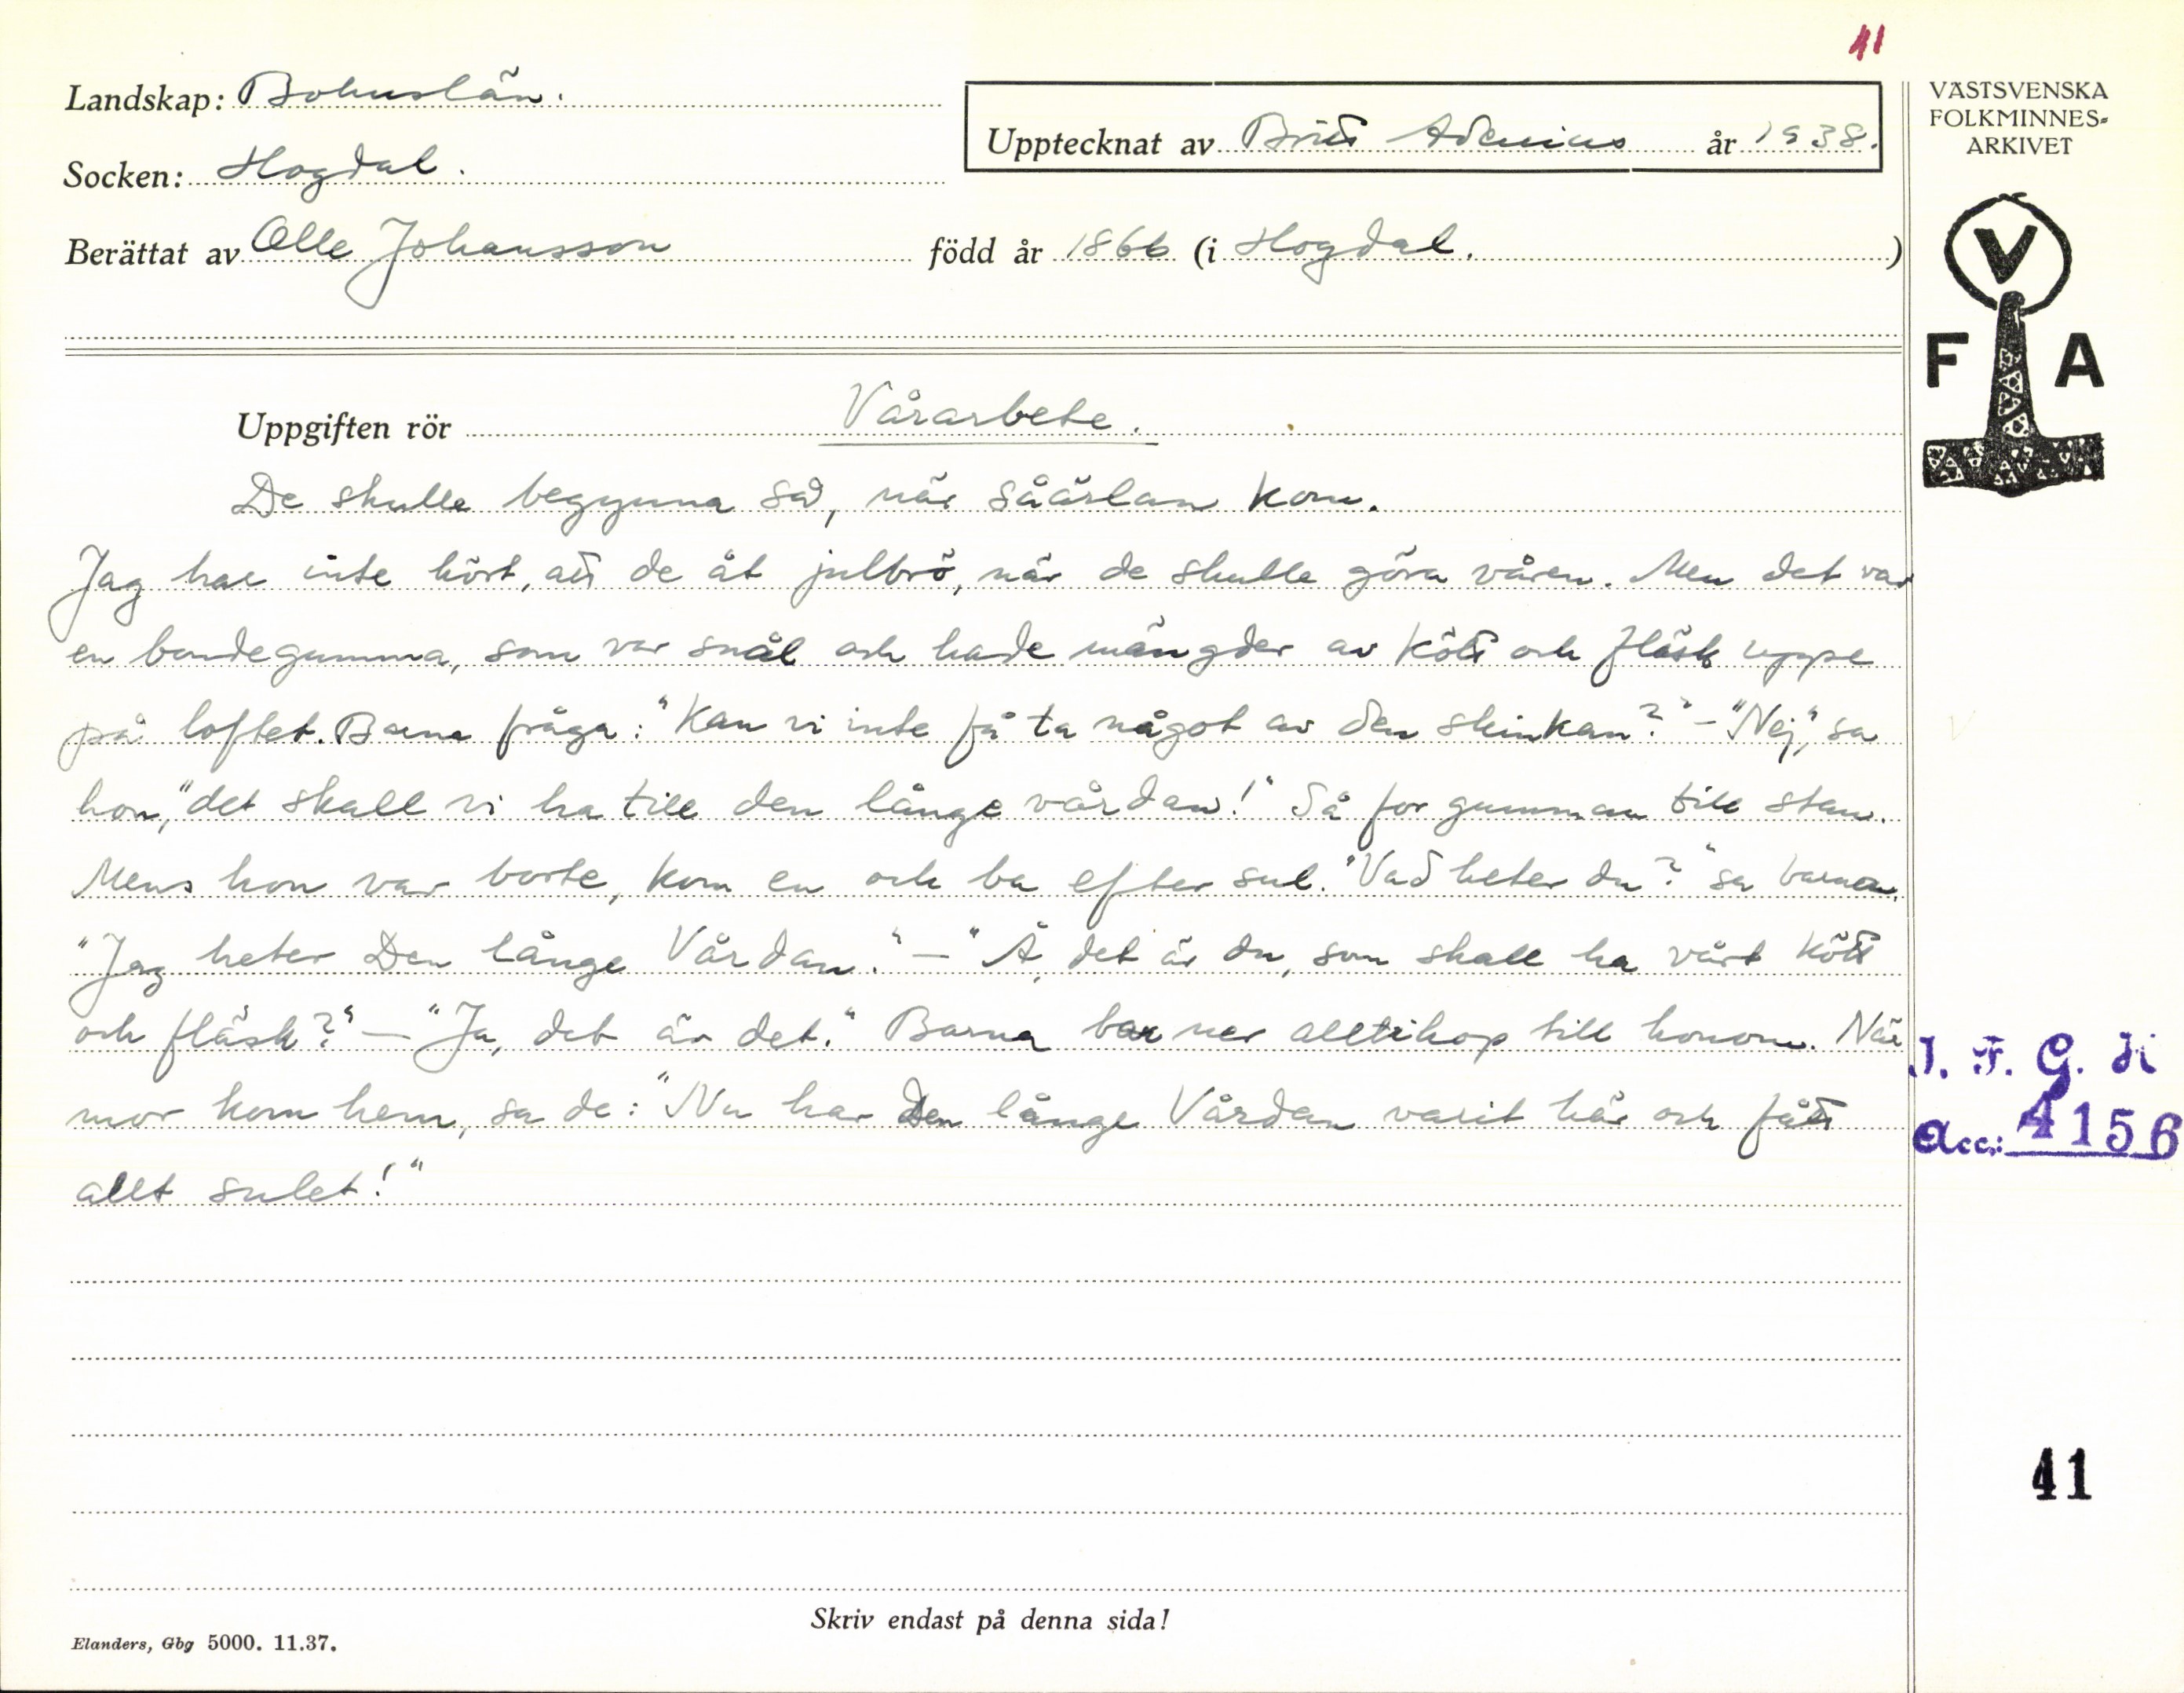 41
Landskap: Bohuslän.
Upptecknat av Britt Adenius år 1938.
Socken: Hogdal.
Berättat av Olle Johansson född år 1866 (i Hogdal.)
VÄSTSVENSKA
FOLKMINNES-
ARKIVET
V
F A
Uppgiften rör Vårarbete.
De skulle begynna så, när såärlan kom.
Jag har inte hört, att de åt julbrö, när de skulle göra våren. Men det var
en bondegumma, som var snål och hade mängder av kött och fläsk uppe
på loftet. Barna fråga: "Kan vi inte få ta något av den skinkan?" - "Nej," sa
hon, "det skall vi ha till den långe vårdan!" Så for gumman till stan.
Mens hon var borte, kom en och ba efter sul. "Vad heter du?" sa barnen.
"Jag heter Den långe Vårdan." - "Å, det är du, som skall ha vårt kött
och fläsk?" - "Ja, det är det." Barna bar ner alltihop till honom. När
mor kom hem, sa de: "Nu har Den långe Vårdan varit här och fått
allt sulet!"
I. F. G. H
Acc.: 4156
41
Skriv endast på denna sida!
Elanders, Gbg 5000. 11.37.